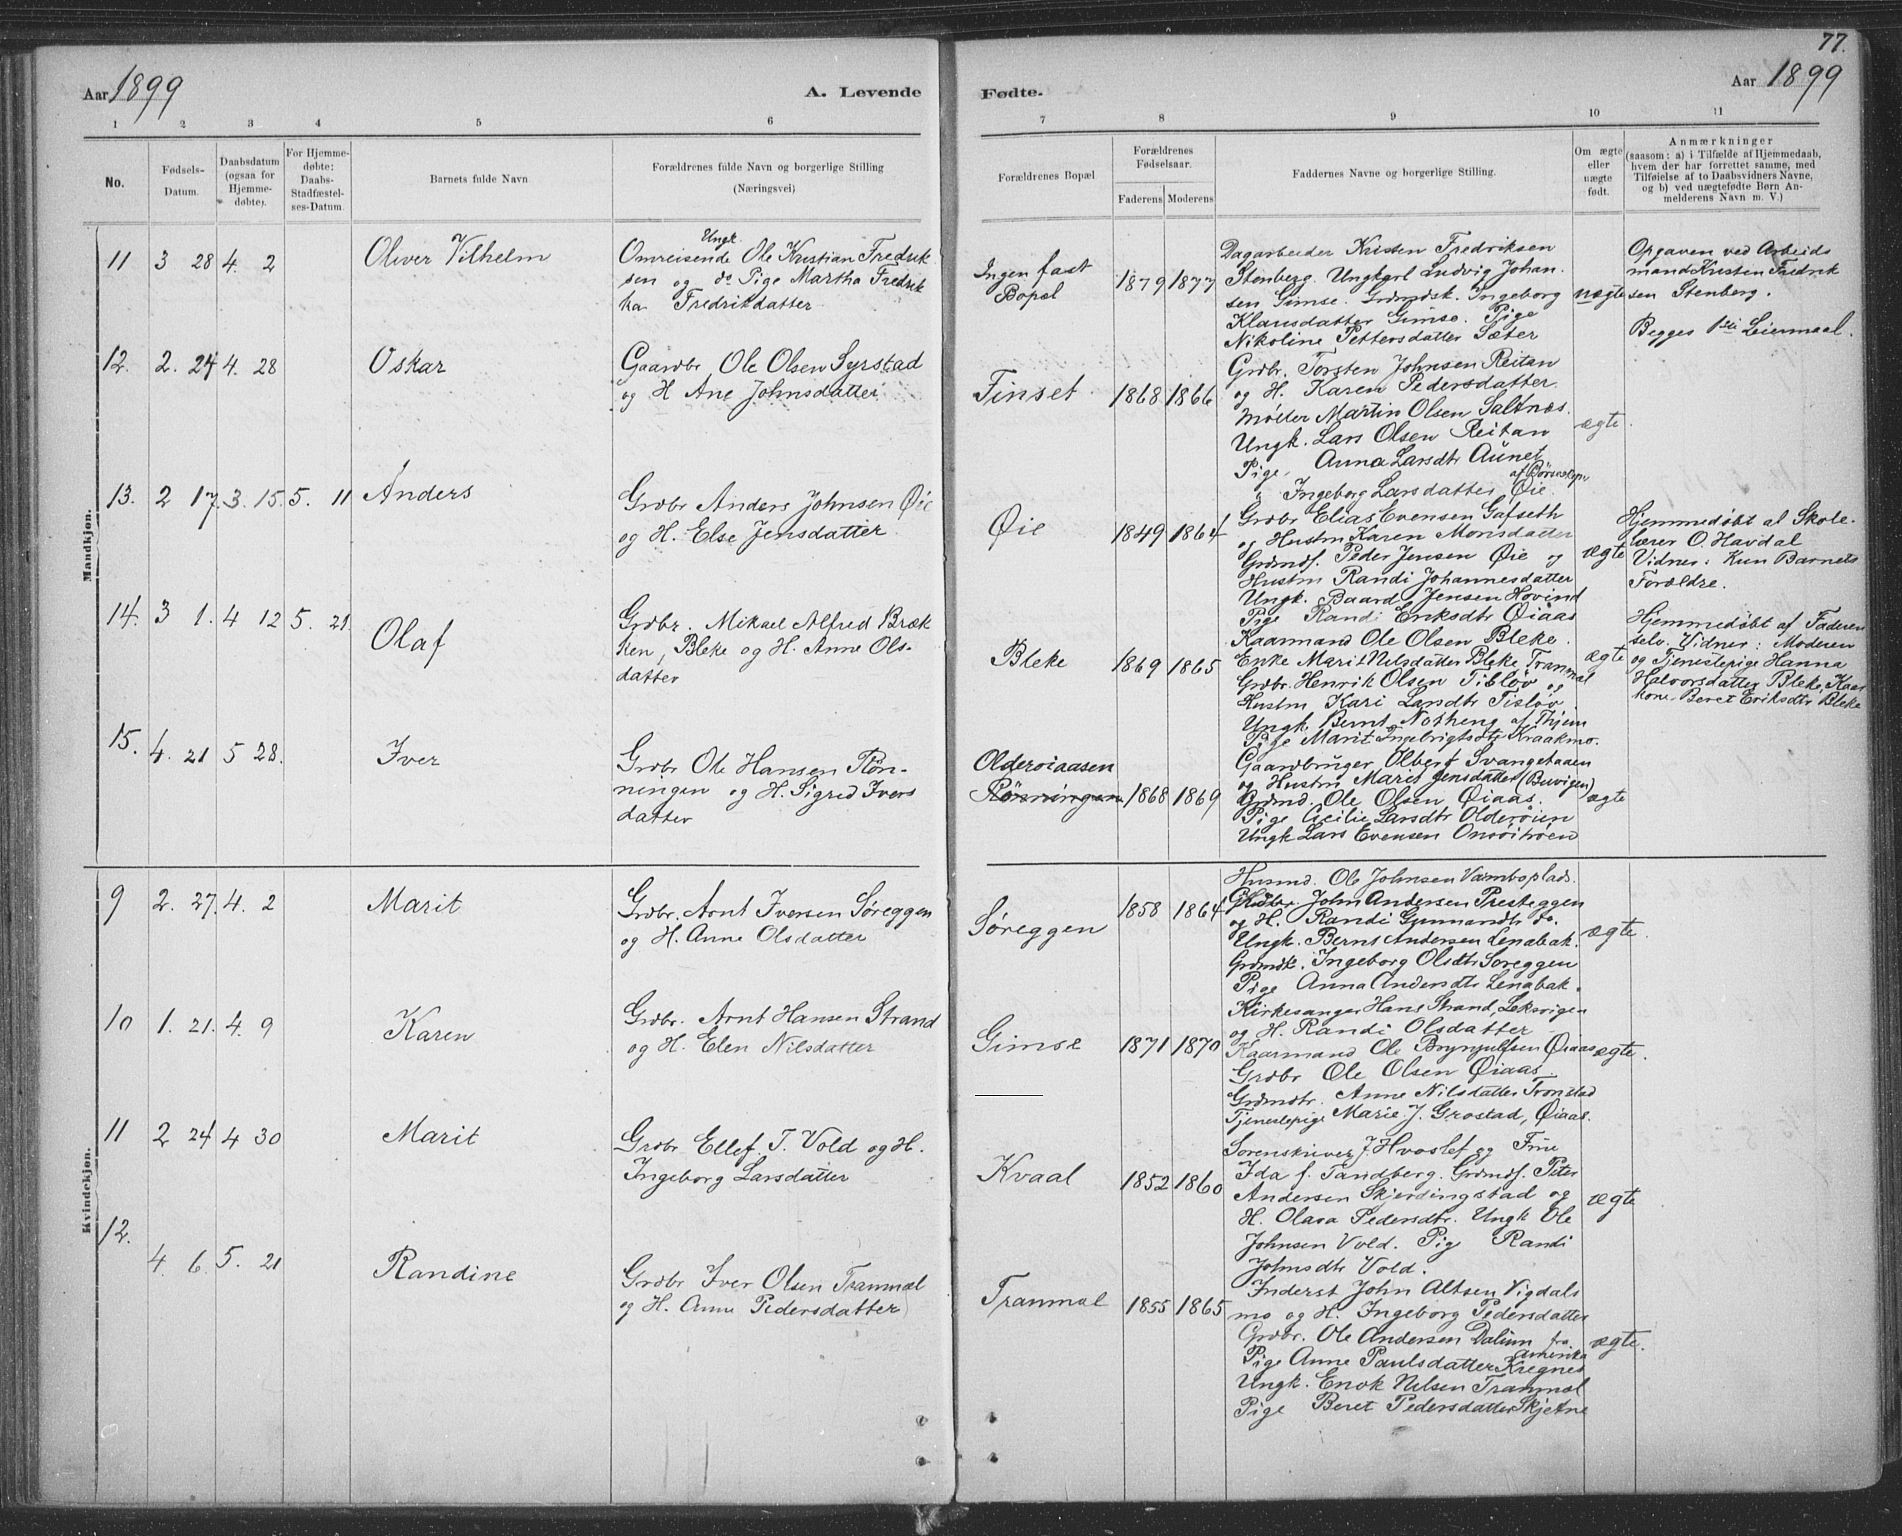 77.
Aar 1899
A. Levende
Fødte.
Aar 1899
1 2 3 4 5 6
7 8 9 10 11
No.
Fødsels-
Datum.
Daabsdatum
(ogsaa for
Hjemme-
døbte).
For Hjemme-
døbte:
Daabs-
Stadfæstel-
ses-Datum.
Barnets fulde Navn
Forældrenes fulde Navn og borgerlige Stilling
(Næringsvei)
Forældrenes Bopæl
Forældrenes
Fødselsaar.
Faderens Moderens
Faddernes Navne og borgerlige Stilling.
Om ægte
eller
uægte
født.
Anmærkninger
(saasom: a) i Tilfælde af Hjemmedaab,
hvem der har forrettet samme, med
Tilføielse af to Daabsvidners Navne,
og b) ved uægtefødte Børn An-
melderens Navn m. V.)
Mandkjøn.
11 3 28 4. 2
Oliver Vilhelm
Ungk.
Omreisende Ole Kristian Fredrik
sen og do Pige Martha Fredrik
ka Fredrikdatter
Ingen fast
Bopæl
1879 1877
Dagarbeider Kristen Fredriksen
Stenberg. Ungkarl Ludvig Johan
sen Gimse. Grdmdsk. Ingeborg
Klausdatter Gimse. Pige
Nikoline Pettersdatter Sæter
uægte
Opgaven ved Arbeids
mand Kristen Fredrik
sen Stenberg.
Begges 1ste Leiermaal.
12. 2. 24 4. 28
Oskar
Gaardbr Ole Olsen Syrstad
og H Ane Johnsdatter
Finset
1868 1866
Grdbr. Torsten Johnsen Reitan
og H. Karen Pedersdatter.
Møller Martin Olsen Saltnæs.
Ungk. Lars Olsen Reitan
Pige. Anna Larsdtr Aunet
af Børseskogn
" Ingeborg Larsdatter Øie.
ægte.
13. 2 17. 3. 15. 5. 11
Anders
Grdbr Anders Johnsen Øie
og H. Else Jensdatter
Øie
1849 1864
Grdbr Elias Evensen Gafseth
og Hustru Karen Monsdatter
Grdmdf. Peder Jensen Øie og
Hustru Randi Johannesdatter
Ungk. Baard Jensen Hovind
Pige Randi Eriksdtr Øiaas
ægte
Hjemmedøbt af Skole-
lærer O. Havdal
Vidner: Kun Barnets
Forældre.
14. 3 1. 4 12 5. 21.
Olaf
Grdbr. Mikael Alfred Bræk
ken, Bleke og H. Anne Ols-
datter
Bleke
1869 1865
Kaarmand Ole Olsen Bleke.
Enke Marit Nilsdatter Bleke, Tranmæl
Grdbr. Henrik Olsen Tisløv og
Hustru Kari Larsdtr Tisløv.
Ungk. Bernt Notheng af Thjem
Pige Marit Ingebrigtsdtr Kraakmo.
ægte
Hjemmedøbt af Faderen
selv. Vidner: Moderen
og Tjenestepige Hanna
Halvorsdatter Bleke, Kaar
kone Beret Eriksdtr Bleke
15. 4. 21 5 28.
Iver
Grdbr Ole Hansen Røn-
ningen og H. Sigrid Ivers
datter
Olderøiaasen
Rønningen
1868 1869
Gaardbruger Olbert Svangetaaen
og Hustru Marit Jensdatter (Buvigen)
Grdmd. Ole Olsen Øiaas.
Pige Cicilie Larsdtr Olderøien
Ungk Lars Evensen Onsøitrøen
ægte
Kvindekjøn.
9 2. 27. 4. 2
Marit
Grdbr. Arnt Iversen Søreggen
og H. Anne Olsdatter
Søreggen
1858 1864
Husmd. Ole Johnsen Vamboplads.
Grdbr. John Andersen Presteggen
og H. Randi Gunnarsdtr do.
Ungk. Bernt Andersen Lenabak.
Grdmdk. Ingeborg Olsdtr Søreggen
Pige Anna Andersdtr Lenabak.
ægte.
10 1. 21. 4. 9
Karen
Grdbr. Arnt Hansen Strand
og H. Elen Nilsdatter
Gimse
1871 1870
Kirkesanger Hans Strand, Leksvigen
og H. Randi Olsdatter
Kaarmand Ole Brynjulfsen Øiaas
Grdbr Ole Olsen Øiaas
Grdmdtr. Anne Nilsdatter Tronstad
Tjenestepige Marie J. Grostad, Øiaas.
ægte.
11 2 24 4 30
Marit
Grdbr Ellef T. Vold og H.
Ingeborg Larsdatter
Kvaal
1852 1860
Sorenskriver J Hvoslef og Frue
Ida f. Tandberg. Grdmdf. Peter
Andersen Skjerdingstad og
H. Olava Pedersdtr. Ungk Ole
Johnsen Vold. Pige Randi
Johnsdtr Vold.
ægte
12. 4. 6. 5. 21
Randine
Grdbr Iver Olsen Tranmæl
og H. Anne Pedersdatter
Tranmæl
1855 1865
Inderst John Altsen Vigdals
mo og H. Ingeborg Pedersdatter
Grdbr. Ole Andersen Dalum fra
Amerika
Pige Anne Paulsdatter Kregnes
Ungk. Enok Nilsen Tranmæl
Pige Beret Pedersdatter Skjetne
ægte.